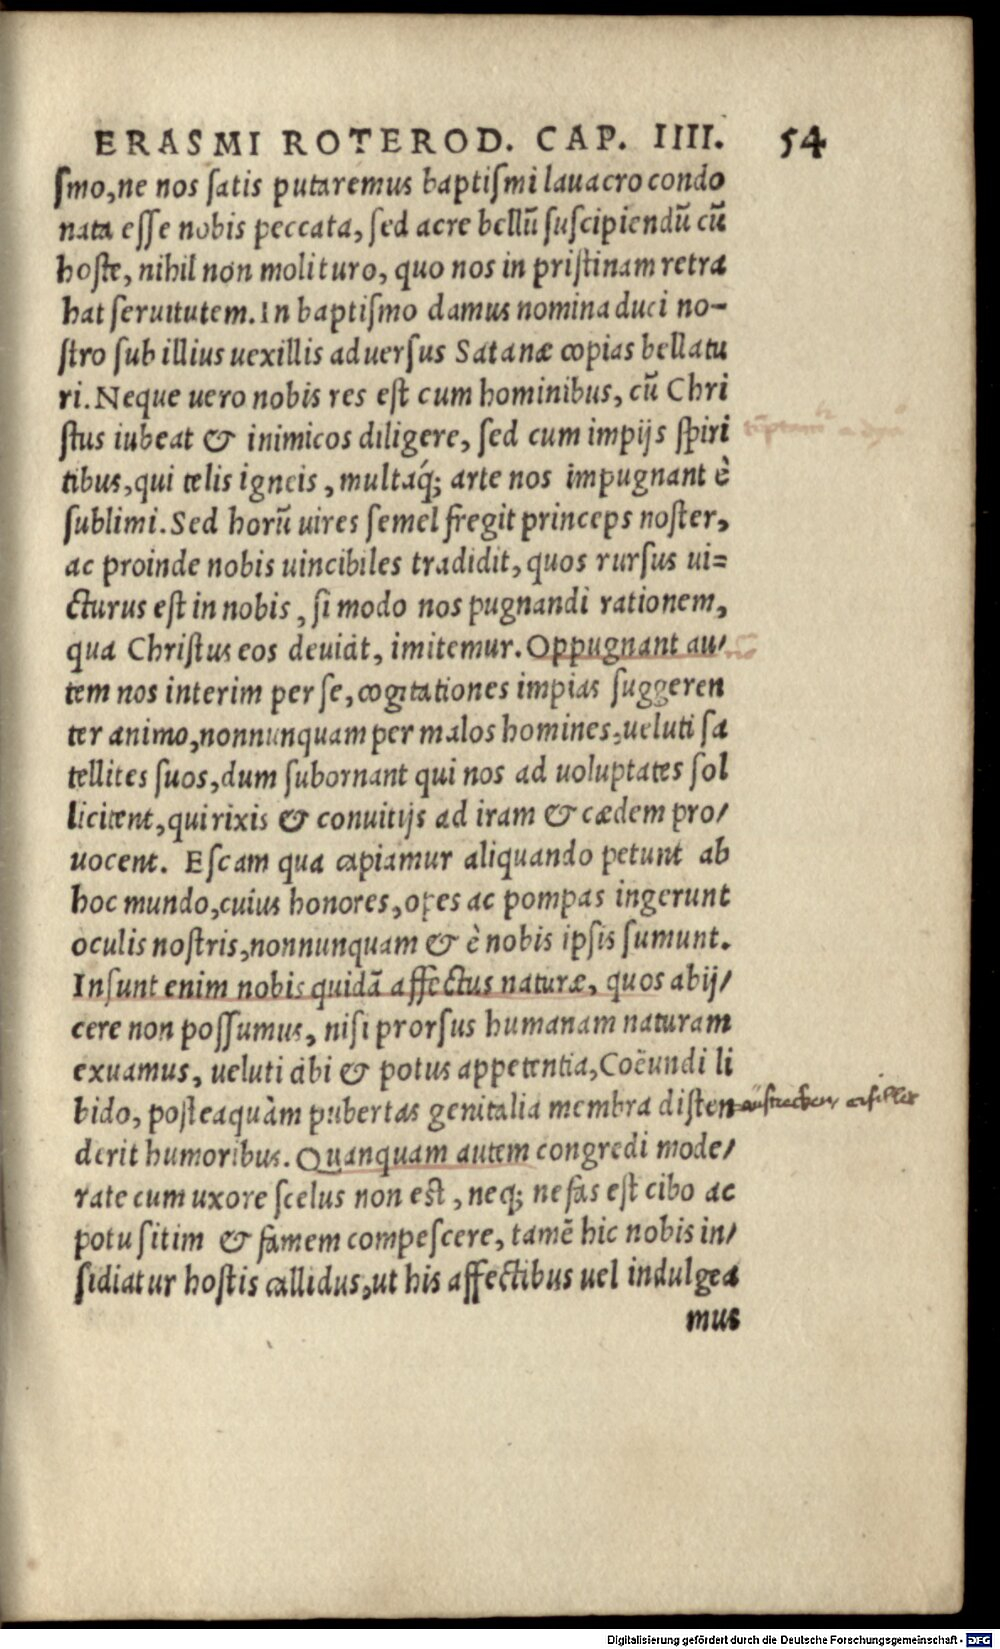 ERASMI ROTEROD. CAP. IIII. 54
ſmo, ne nos ſatis putaremus baptiſmi lauacro condo
nata eſſe nobis peccata, ſed acre bellū ſuſcipiendū cū
hoſte, nihil non molituro, quo nos in priſtinam retra
hat ſeruitutem. In baptiſmo damus nomina duci no-
ſtro ſub illius uexillis aduerſus Satanæ copias bellatu
ri. Neque uero nobis res eſt cum hominibus, cū Chri
ſtus iubeat & inimicos diligere, ſed cum impijs ſpiri
tibus, qui telis igneis, multaq́; arte nos impugnant è
ſublimi. Sed horū uires ſemel fregit princeps noſter,
ac proinde nobis uincibiles tradidit, quos rurſus ui=
cturus eſt in nobis, ſi modo nos pugnandi rationem,
qua Chriſtus eos deuicit, imitemur. Oppugnant au/
tem nos interim per ſe, cogitationes impias ſuggeren
ter animo, nonnunquam per malos homines, ueluti ſa
tellites ſuos, dum ſubornant qui nos ad uoluptates ſol
licitent, qui rixis & conuitijs ad iram & cædem pro/
uocent. Eſcam qua capiamur aliquando petunt ab
hoc mundo, cuius honores, opes ac pompas ingerunt
oculis noſtris, nonnunquam & è nobis ipſis ſumunt.
Inſunt enim nobis quidā affectus naturæ, quos abij/
cere non poſſumus, niſi prorſus humanam naturam
exuamus, ueluti cibi & potus appetentia, Coëundi li
bido, poſteaquàm pubertas genitalia membra diſten
derit humoribus. Quanquam autem congredi mode/
rate cum uxore ſcelus non eſt, neq; nefas eſt cibo ac
potu ſitim & famem compeſcere, tamē hic nobis in/
ſidiatur hoſtis callidus, ut his affectibus uel indulgea
mus
Digitalisierung gefördert durch die Deutsche Forschungsgemeinschaft - DFG